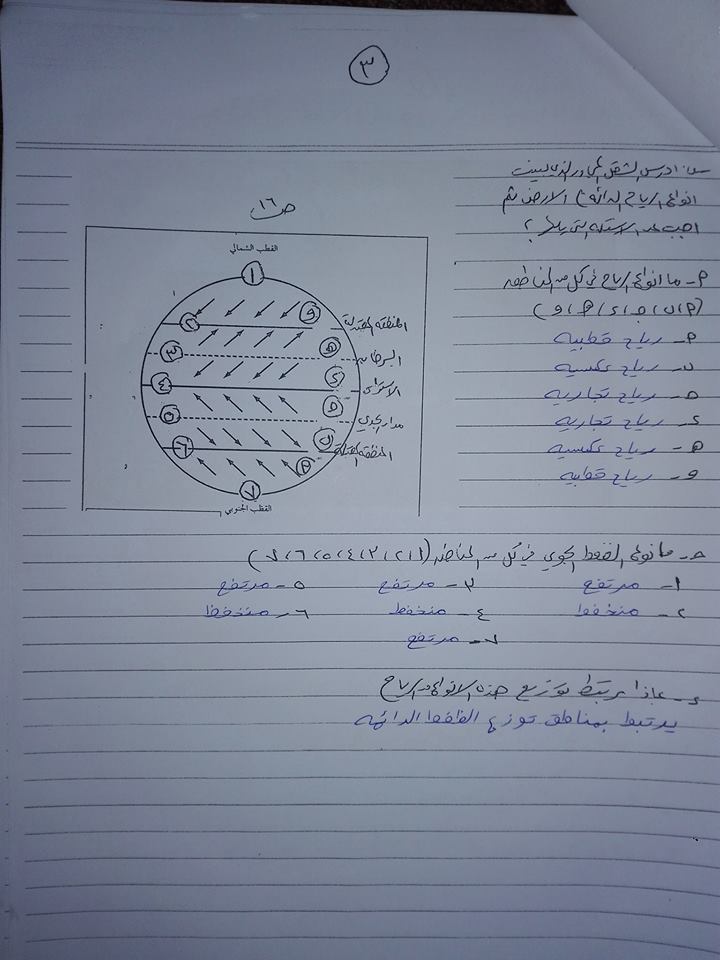 ٣
س: ادرس الشكل المجاور الذي يبين
انواع الرياح الدائمة / الارض ثم
اجب عن الاسئلة التي يليها ؟
ص ١٦
القطب الشمالي
١
و
٢
المنطقة المعتدلة
٣
ه
السرطان
٤
د
الاستواء
٥
مدار الجدي
٦
ب
٧
القطب الجنوبي
أ- ما انواع الرياح في كل من المناطق
أ- رياح قطبية
ب- رياح عكسية
ج- رياح تجارية
د- رياح تجارية
ه- رياح عكسية
و- رياح قطبية
ج- ما نوع الضغط الجوي في كل من المناطق (١،٢،٣،٤،٥،٦،٧)
١- مرتفع ٣- مرتفع ٥- مرتفع
٢- منخفظ ٤- منخفظ ٦- منخفظ
٧- مرتفع
د- بماذا يرتبط توزيع هذه الانواع من الرياح
يرتبط بمناطق توزع الظغظ الدائمه